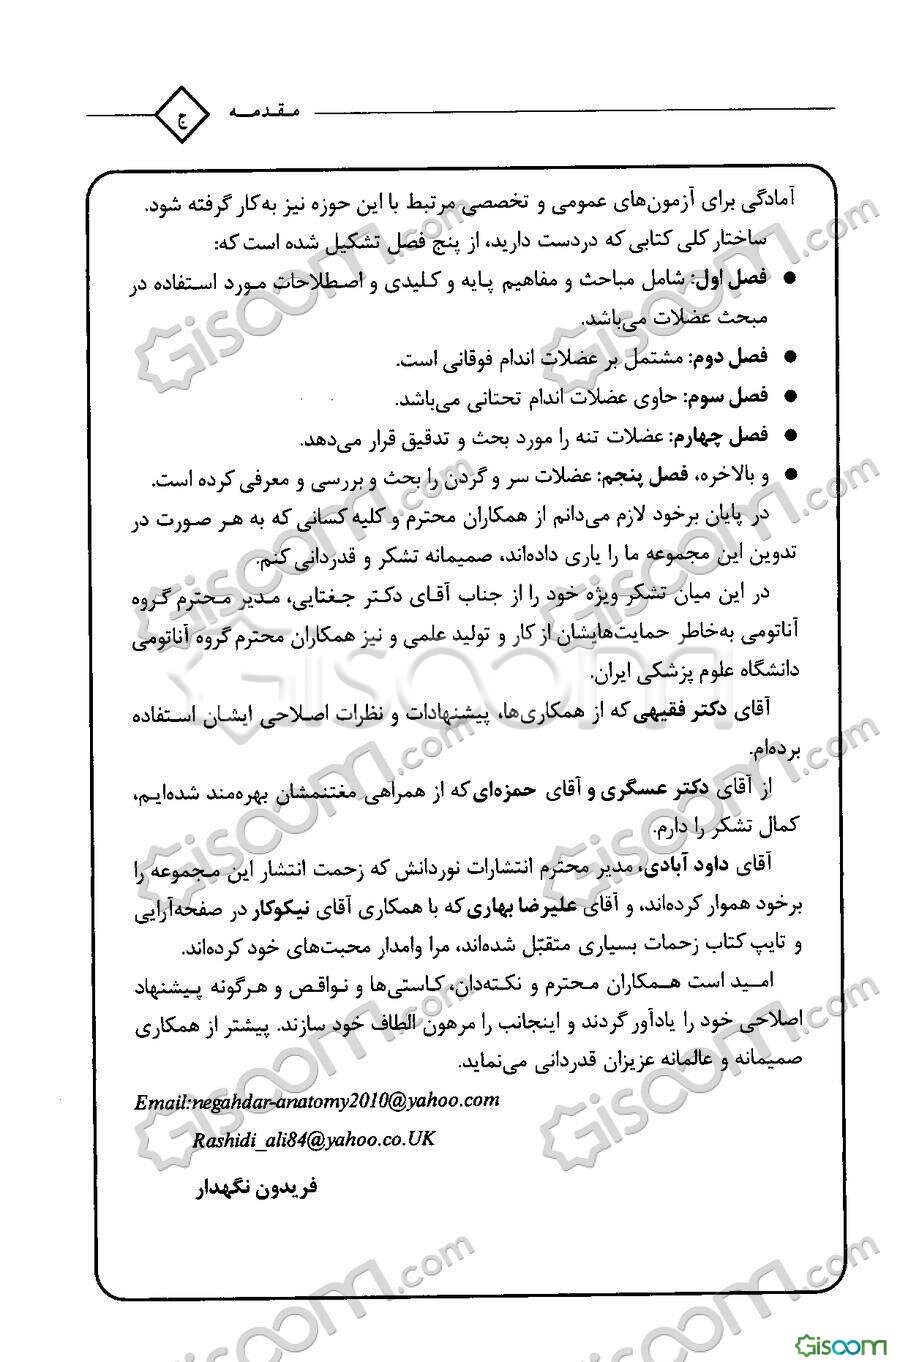 مقدمه
ج
آمادگی برای آزمون‌های عمومی و تخصصی مرتبط با این حوزه نیز به‌کار گرفته شود.
ساختار کلی کتابی که دردست دارید، از پنج فصل تشکیل شده است که:
● فصل اول: شامل مباحث و مفاهیم پایه و کلیدی و اصطلاحات مورد استفاده در
مبحث عضلات می‌باشد.
● فصل دوم: مشتمل بر عضلات اندام فوقانی است.
● فصل سوم: حاوی عضلات اندام تحتانی می‌باشد.
● فصل چهارم: عضلات تنه را مورد بحث و تدقیق قرار می‌دهد.
● و بالاخره، فصل پنجم: عضلات سر و گردن را بحث و بررسی و معرفی کرده است.
در پایان برخود لازم می‌دانم از همکاران محترم و کلیه کسانی که به هر صورت در
تدوین این مجموعه ما را یاری داده‌اند، صمیمانه تشکر و قدردانی کنم.
در این میان تشکر ویژه خود را از جناب آقای دکتر جغتایی، مدیر محترم گروه
آناتومی به‌خاطر حمایت‌هایشان از کار و تولید علمی و نیز همکاران محترم گروه آناتومی
دانشگاه علوم پزشکی ایران.
آقای دکتر فقیهی که از همکاری‌ها، پیشنهادات و نظرات اصلاحی ایشان استفاده
برده‌ام.
از آقای دکتر عسگری و آقای حمزه‌ای که از همراهی مغتنمشان بهره‌مند شده‌ایم،
کمال تشکر را دارم.
آقای داود آبادی، مدیر محترم انتشارات نوردانش که زحمت انتشار این مجموعه را
برخود هموار کرده‌اند، و آقای علیرضا بهاری که با همکاری آقای نیکوکار در صفحه‌آرایی
و تایپ کتاب زحمات بسیاری متقبّل شده‌اند، مرا وامدار محبت‌های خود کرده‌اند.
امید است همکاران محترم و نکته‌دان، کاستی‌ها و نواقص و هرگونه پیشنهاد
اصلاحی خود را یادآور گردند و اینجانب را مرهون الطاف خود سازند. پیشتر از همکاری
صمیمانه و عالمانه عزیزان قدردانی می‌نماید.
Email:negahdar-anatomy2010@yahoo.com
Rashidi_ali84@yahoo.co.UK
فریدون نگهدار
Gisoom